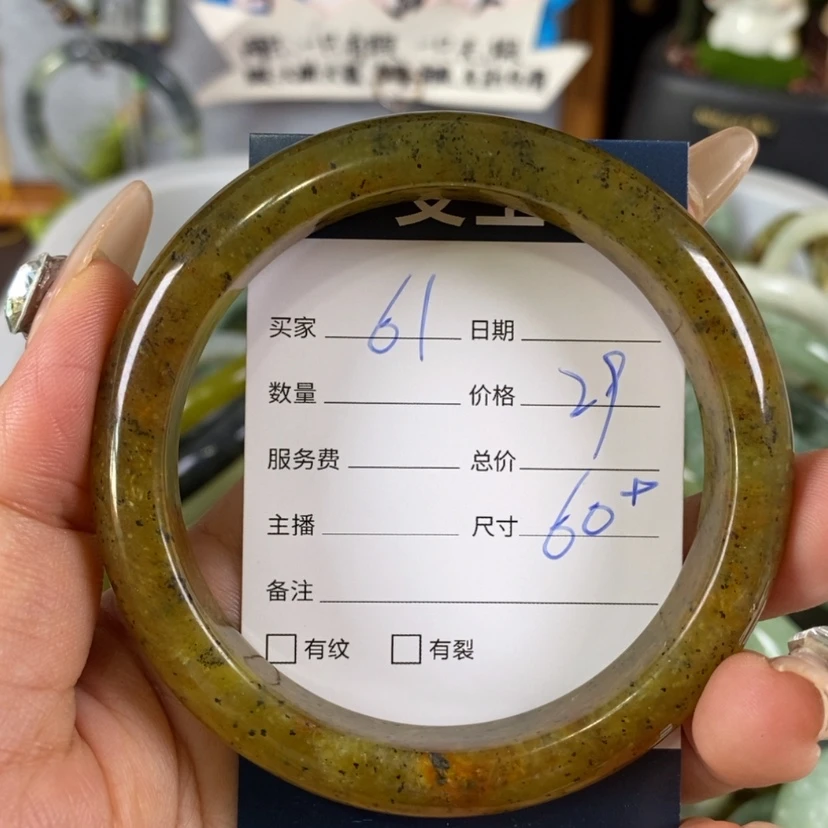 买家 61 日期
数量 价格 29
服务费 总价
主播 尺寸 60+
备注
有纹 有裂